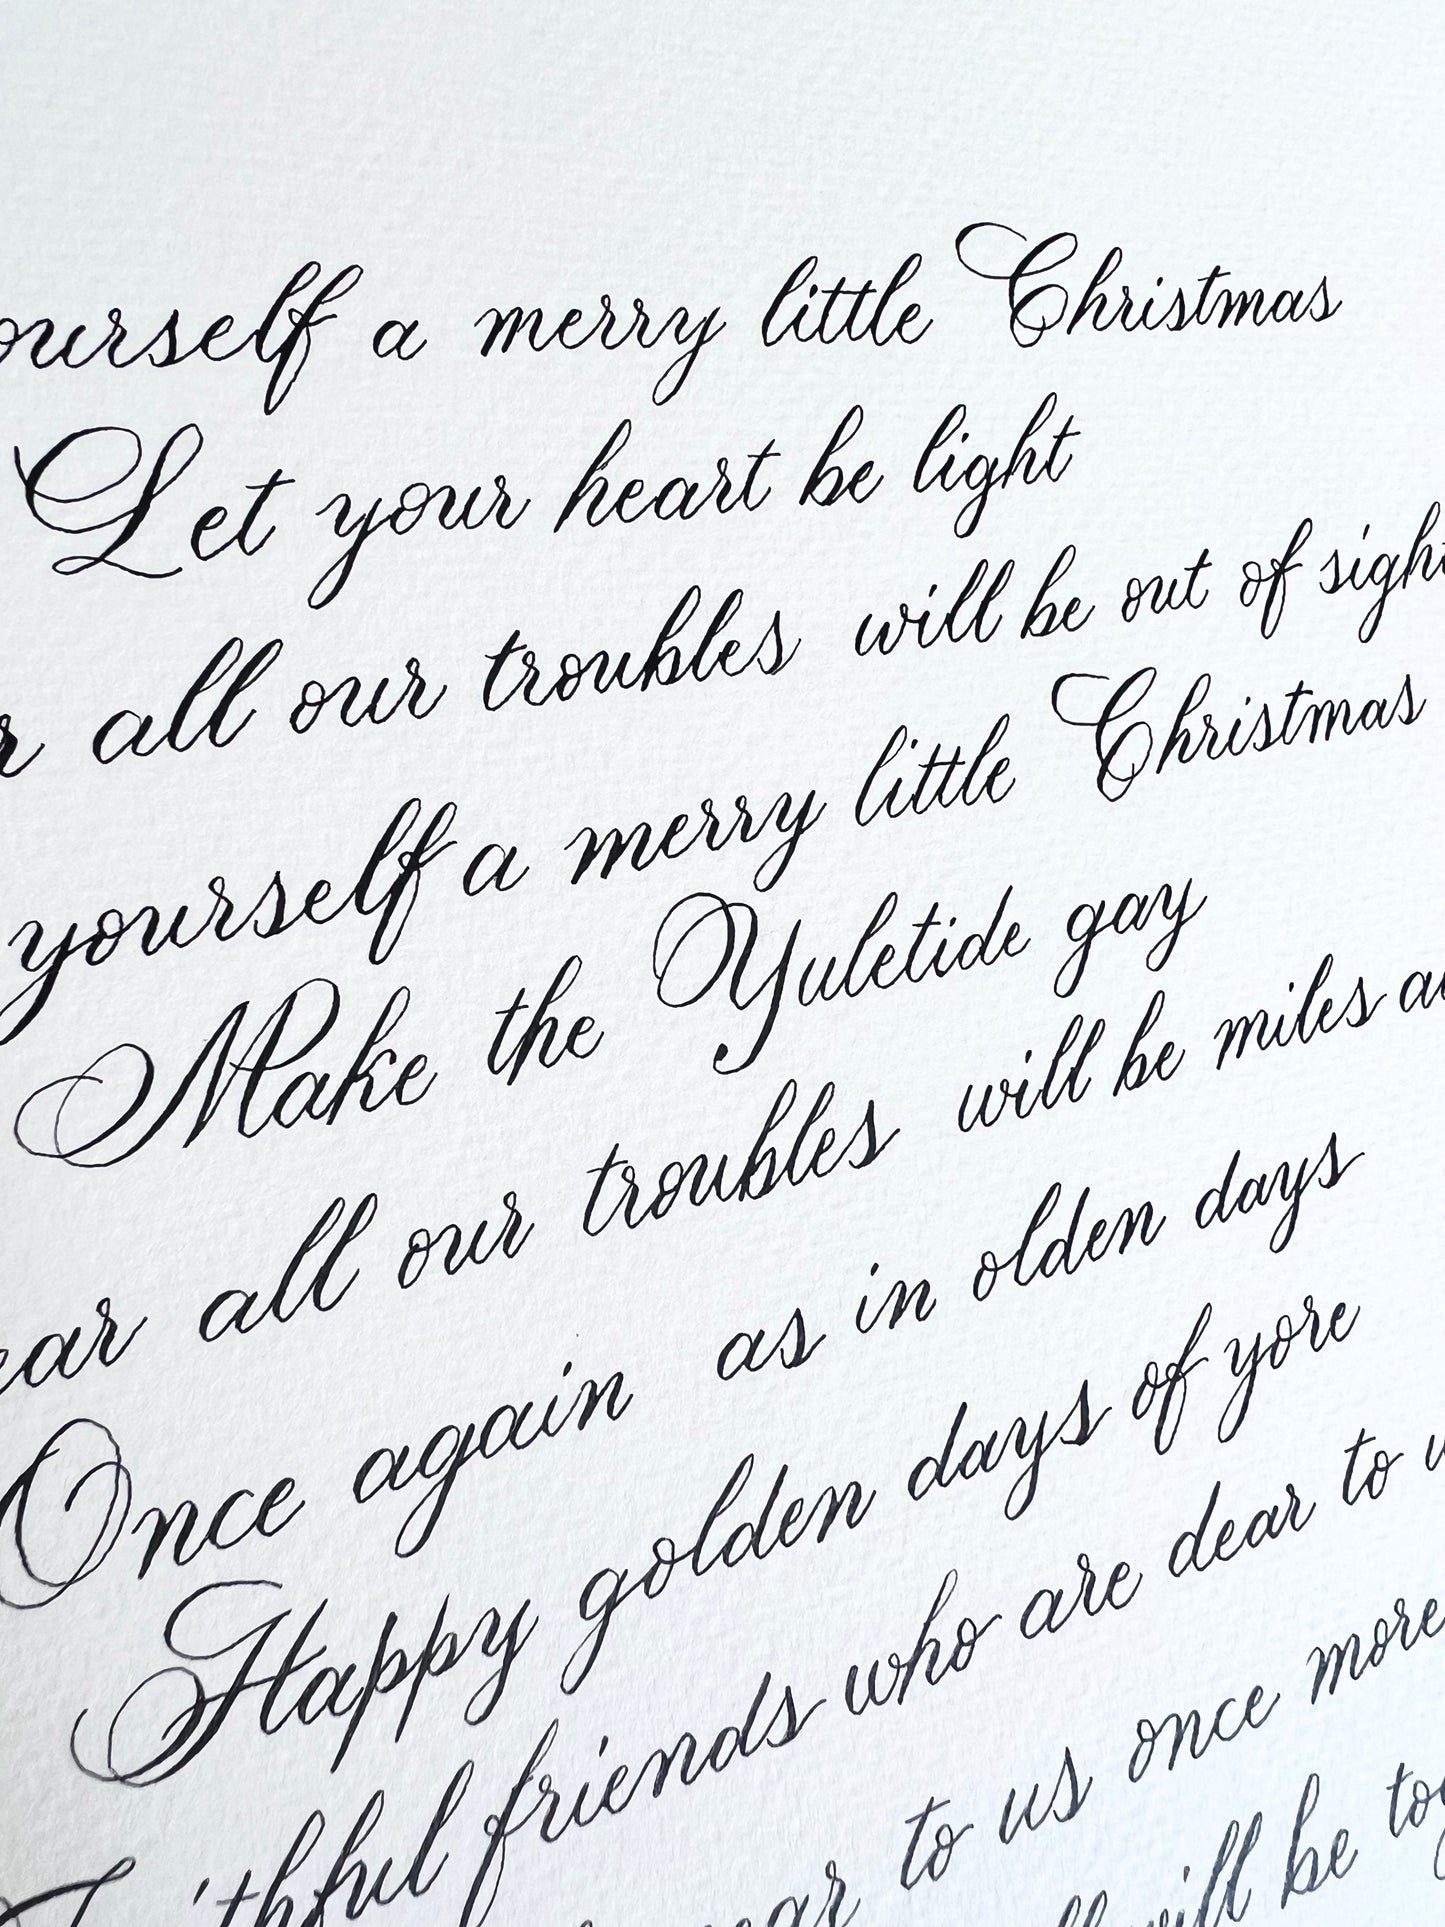 ourself a merry little Christmas
Let your heart be light
r all our troubles will be out of sight
yourself a merry little Christmas
Make the Yuletide gay
ear all our troubles will be miles a
Once again as in olden days
Happy golden days of yore
friends who are dear to u
to us once more
will be tog